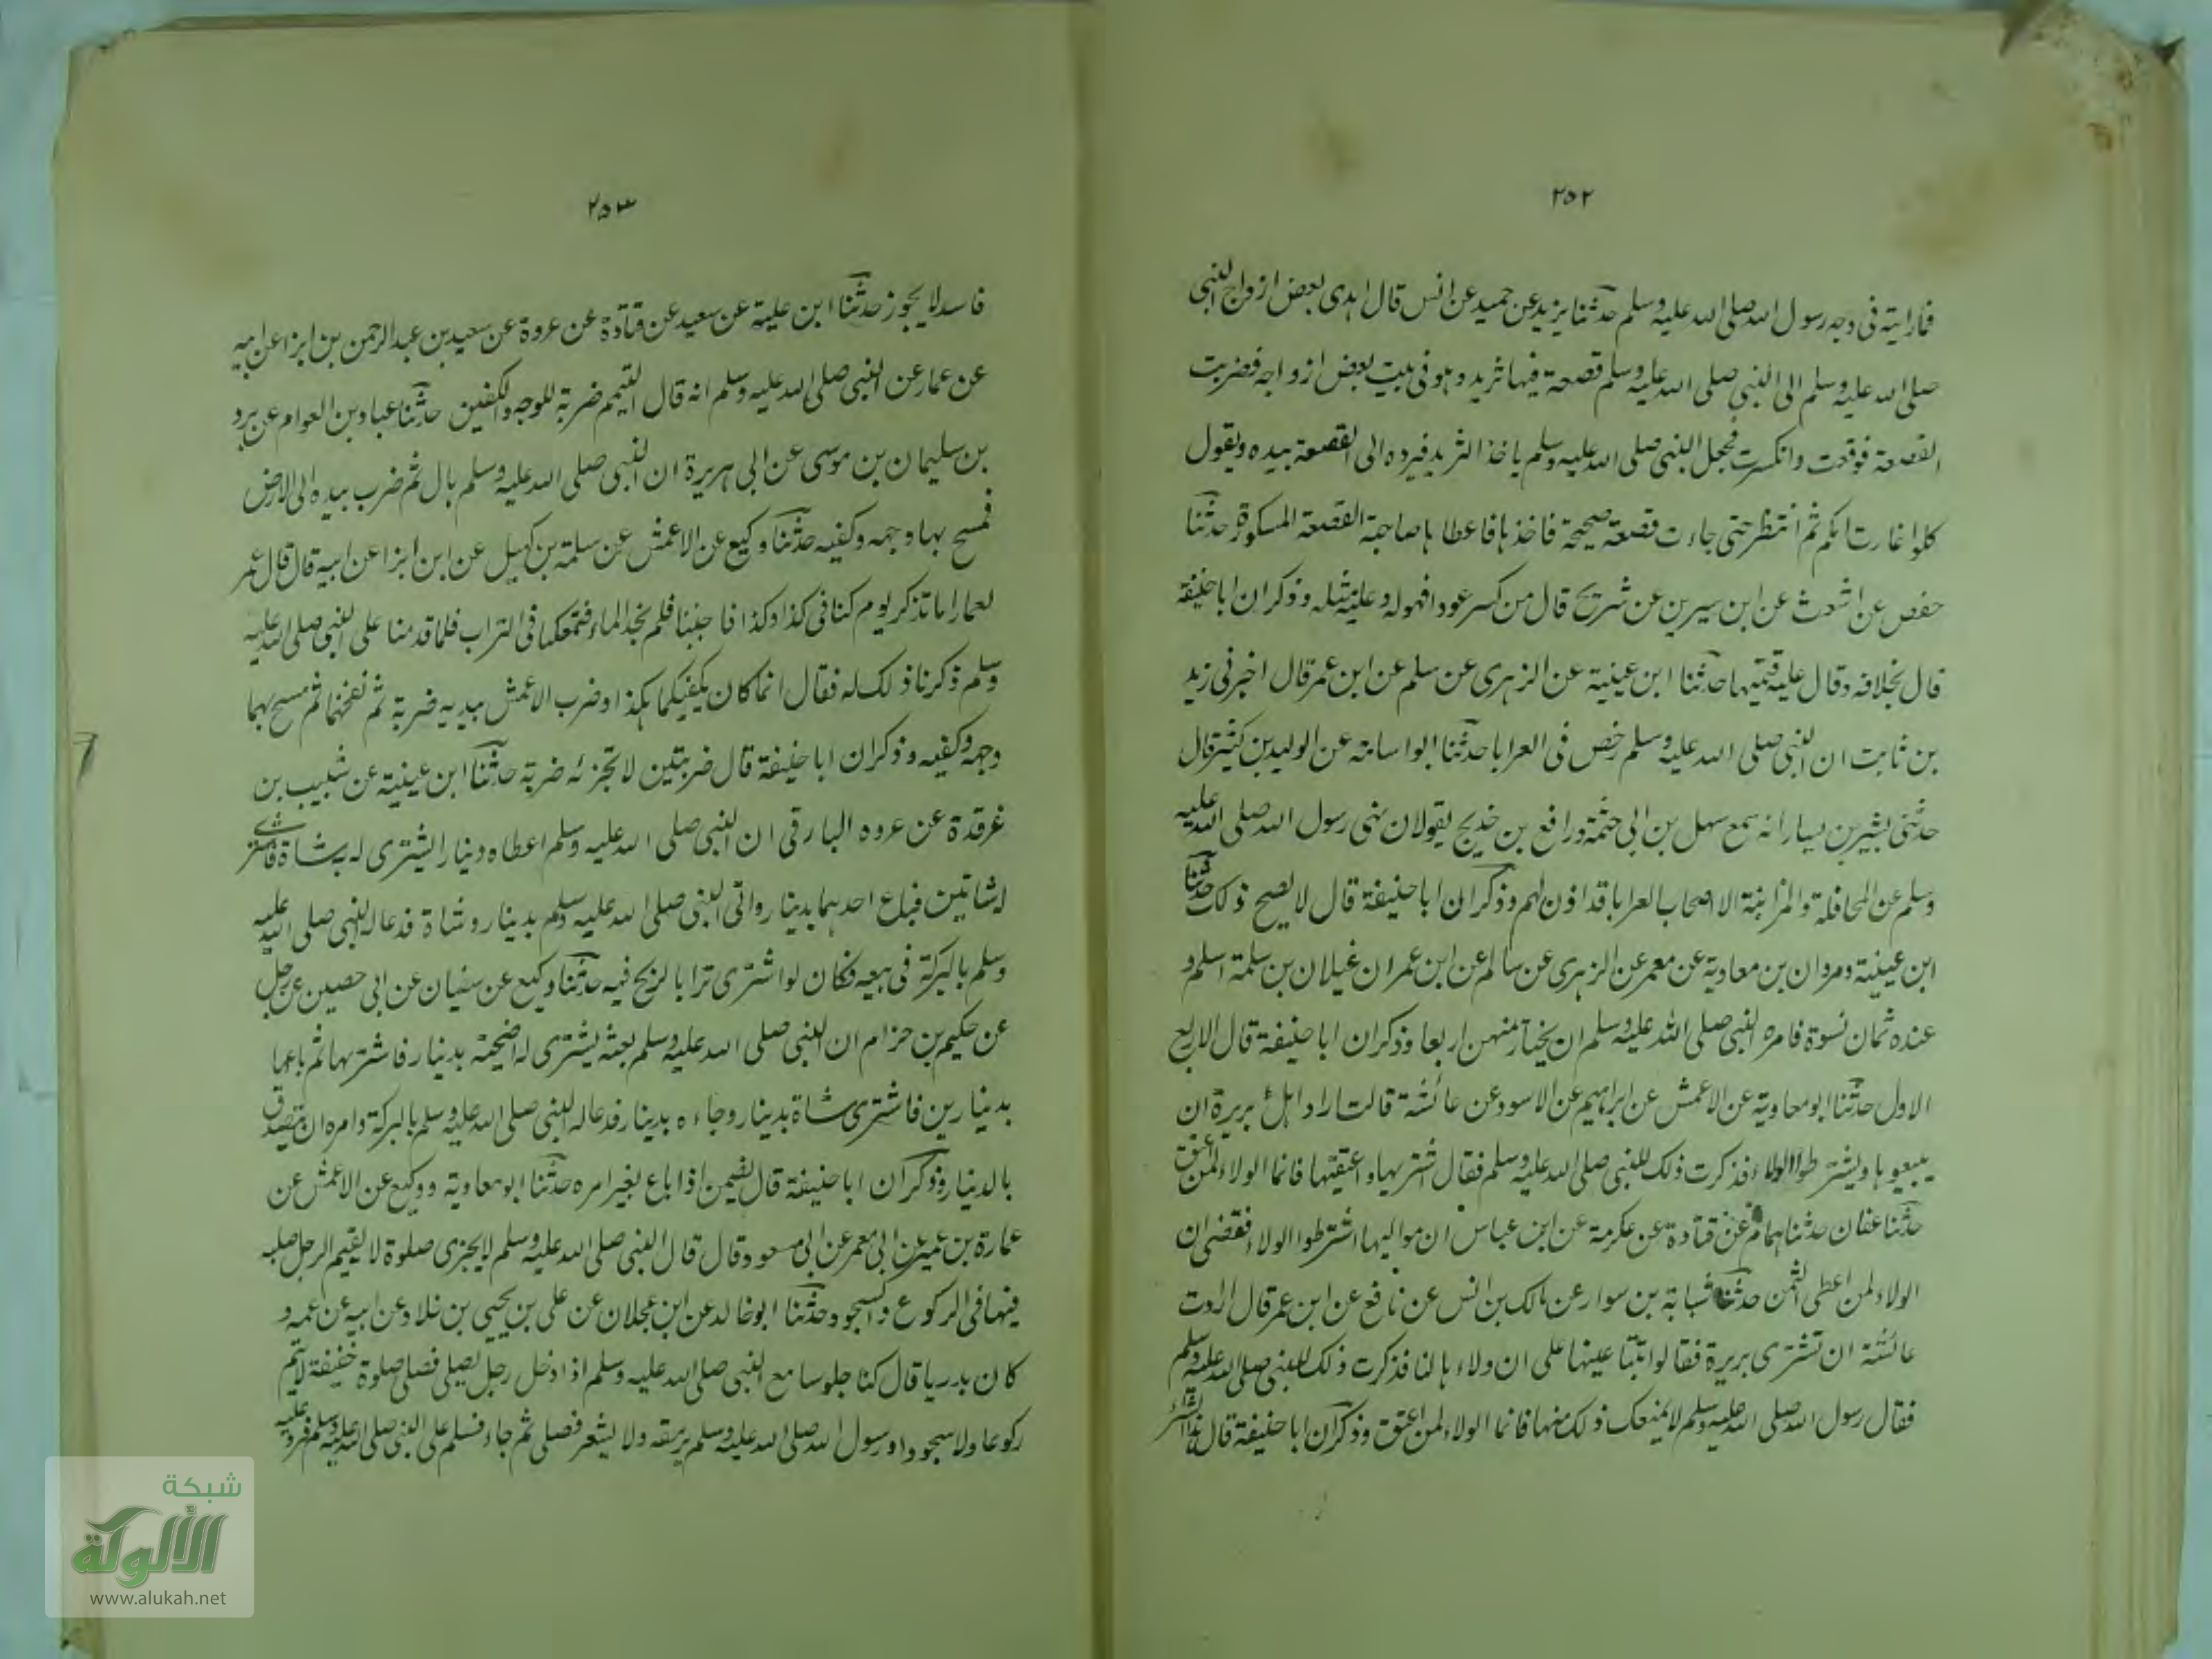 ٢٥٢
فما رايته فى وجه رسول الله صلى الله عليه وسلم حدثنا يزيد عن حميد عن انس قال اهدى بعض ازواج النبى
صلى الله عليه وسلم الى النبى صلى الله عليه وسلم قصعة فيها ثريد وهو فى بيت بعض ازواجه فضربت
القصعة فوقعت وانكسرت فجعل النبى صلى الله عليه وسلم ياخذ الثريد فيرده الى القصعة بيده ويقول
كلوا غارت امكم ثم انتظر حتى جاءت قصعة صحيحة فاخذها فاعطاها صاحبة القصعة المسكورة حدثنا
حفص عن اشعث عن ابن سيرين عن شريح قال من كسر عودا فهو له وعليه مثله وذكر ان ابا حنيفة
قال بخلافه وقال عليه قيمتها حدثنا ابن عيينة عن الزهرى عن سلم عن ابن عمر قال اخبرنى زيد
بن ثابت ان النبى صلى الله عليه وسلم رخص فى العرايا حدثنا ابو اسامة عن الوليد بن كثير قال
حدثنى بشير بن يسار انه سمع سهل بن ابى حثمة ورافع بن خديج يقولان نهى رسول الله صلى الله عليه
وسلم عن المحاقلة والمزابنة الا اصحاب العرايا قد اذن لهم وذكر ان ابا حنيفة قال لا يصح ذلك حدثنا
ابن عيينة ومروان بن معاوية عن معمر عن الزهرى عن سالم عن ابن عمر ان غيلان بن سلمة اسلم و
عنده ثمان نسوة فامره النبى صلى الله عليه وسلم ان يختار منهن اربعا وذكر ان ابا حنيفة قال الاربع
الاول حدثنا ابو معاوية عن الاعمش عن ابراهيم عن الاسود عن عائشة قالت اراد اهل بريرة ان
يبيعوها ويشترطوا الولاء فذكرت ذلك للنبى صلى الله عليه وسلم فقال اشتريها واعتقيها فانما الولاء لمن اعتق
حدثنا عفان حدثنا همام عن قتادة عن عكرمة عن ابن عباس ان مواليها اشترطوا الولاء فقضى ان
الولاء لمن اعطى الثمن حدثنا شبابة بن سوار عن مالك بن انس عن نافع عن ابن عمر قال ارادت
عائشة ان تشترى بريرة فقالوا تبتاعينها على ان ولاءها لنا فذكرت ذلك للنبى صلى الله عليه وسلم
فقال رسول الله صلى الله عليه وسلم لا يمنعك ذلك منها فانما الولاء لمن اعتق وذكر ان ابا حنيفة قال هذا الشراء
٢٥٣
فاسد لا يجوز حدثنا ابن علية عن سعيد عن قتادة عن عروة عن سعيد بن عبد الرحمن بن ابزا عن ابيه
عن عمار عن النبى صلى الله عليه وسلم انه قال التيمم ضربة للوجه والكفين حدثنا عباد بن العوام عن برد
بن سليمان بن موسى عن ابى هريرة ان النبى صلى الله عليه وسلم بال ثم ضرب بيده الى الارض
فمسح بها وجهه وكفيه حدثنا وكيع عن الاعمش عن سلمة بن كهيل عن ابن ابزا عن ابيه قال قال عمر
لعمار اما تذكر يوم كنا فى كذا وكذا فاجنبنا فلم نجد الماء فتمعكنا فى التراب فلما قدمنا على النبى صلى الله عليه
وسلم ذكرنا ذلك له فقال انما كان يكفيكما هكذا وضرب الاعمش بيديه ضربة ثم نفخهما ثم مسح بهما
وجهه وكفيه وذكر ان ابا حنيفة قال ضربتين لا تجزئه ضربة حدثنا ابن عيينة عن شبيب بن
غرقدة عن عروه البارقى ان النبى صلى الله عليه وسلم اعطاه دينارا يشترى له به شاة فاشترى
لشاتين فباع احدهما بدينار واتى النبى صلى الله عليه وسلم بدينار وشاة فدعا له النبى صلى الله عليه
وسلم بالبركة فى بيعه فكان لو اشترى ترابا لربح فيه حدثنا وكيع عن سفيان عن ابى حصين عن رجل
عن حكيم بن حزام ان النبى صلى الله عليه وسلم بعثه يشترى له اضحية بدينار فاشترها ثم باعها
بدينارين فاشترى شاة بدينار وجاءه بدينار فدعا له النبى صلى الله عليه وسلم بالبركة وامره ان يتصدق
بالدينار وذكر ان ابا حنيفة قال يضمن اذا باع بغير امره حدثنا ابو معاوية ووكيع عن الاعمش عن
عمارة بن عمير عن ابى معمر عن ابى مسعود قال قال النبى صلى الله عليه وسلم لا يجزى صلوة لا يقيم الرجل صلبه
فيها فى الركوع والسجود حدثنا ابو خالد عن ابن عجلان عن على بن يحيى بن خلاد عن ابيه عن عمه و
كان بدريا قال كنا جلوسا مع النبى صلى الله عليه وسلم اذا دخل رجل يصلى فصلى صلوة خفيفة لا يتم
ركوعا ولا سجودا ورسول الله صلى الله عليه وسلم يرمقه ولا يشعر فصلى ثم جاء فسلم على النبى صلى الله عليه وسلم فرد عليه
شبكة
الألوكة
www.alukah.net